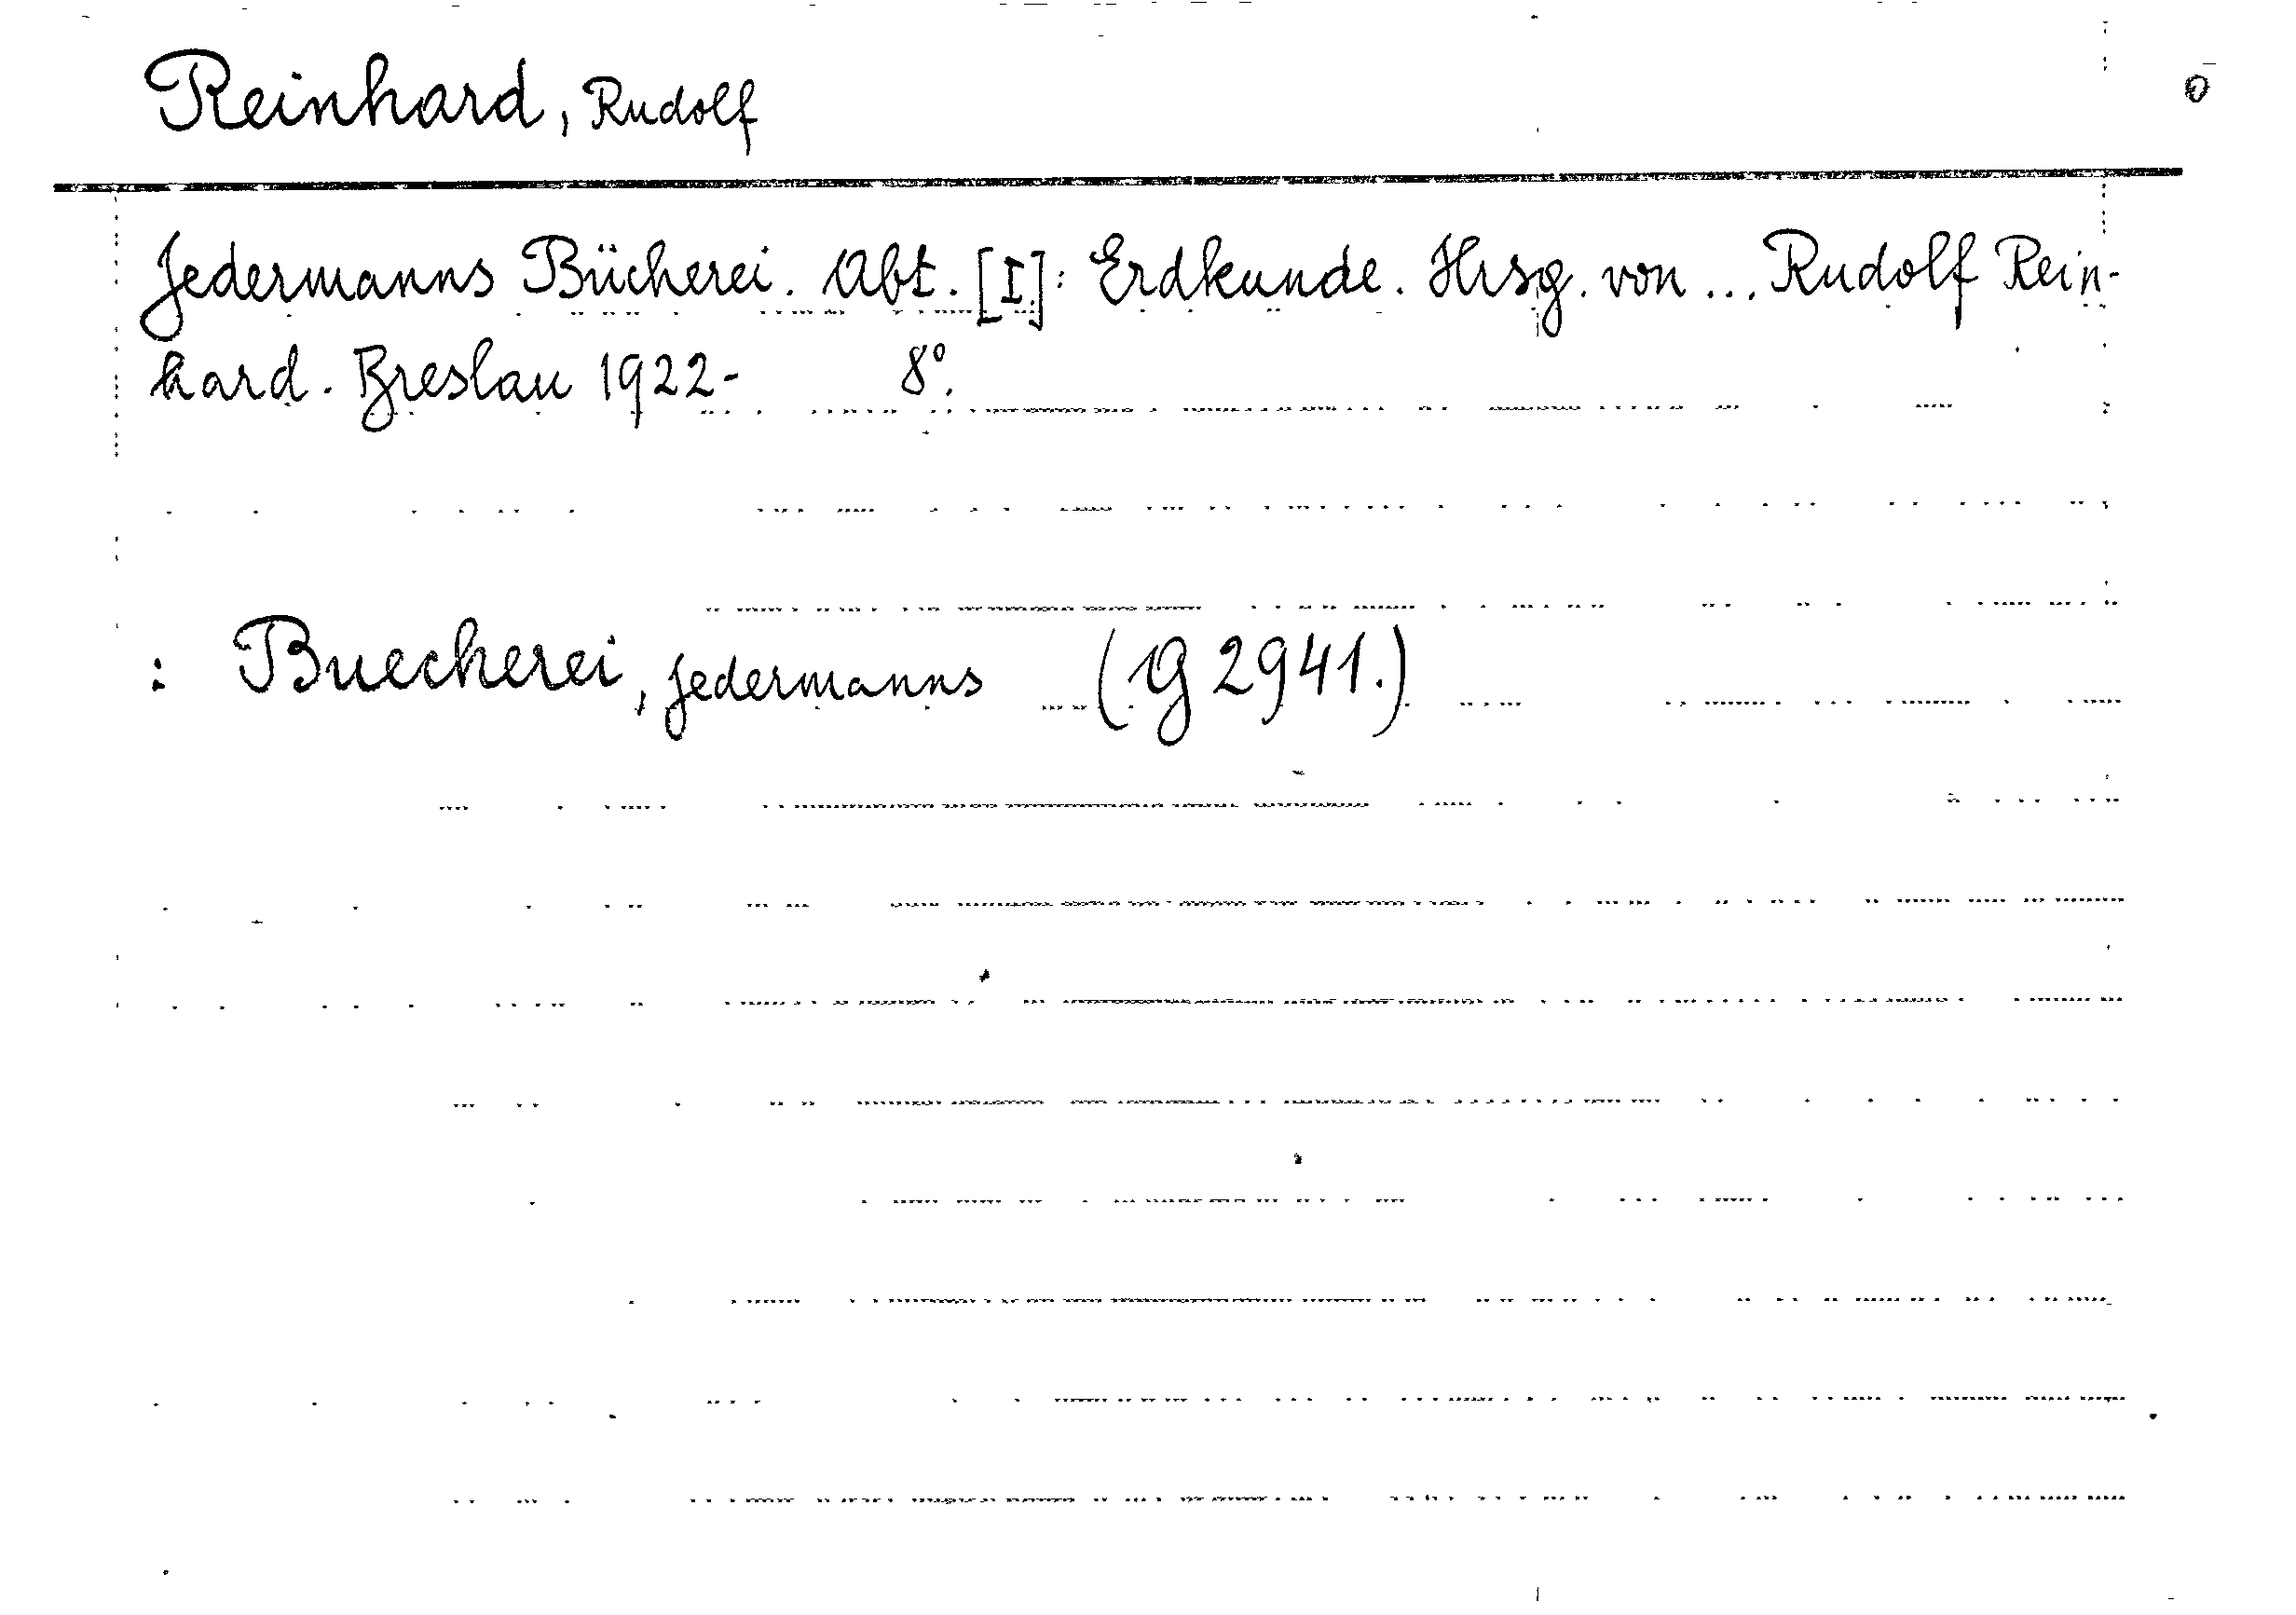 Reinhard, Rudolf
Jedermanns Bücherei. Abt. [I]: Erdkunde. Hrsg. von ... Rudolf Rein-
hard. Breslau 1922- 8°.
: Buecherei, jedermanns (G 2941.)